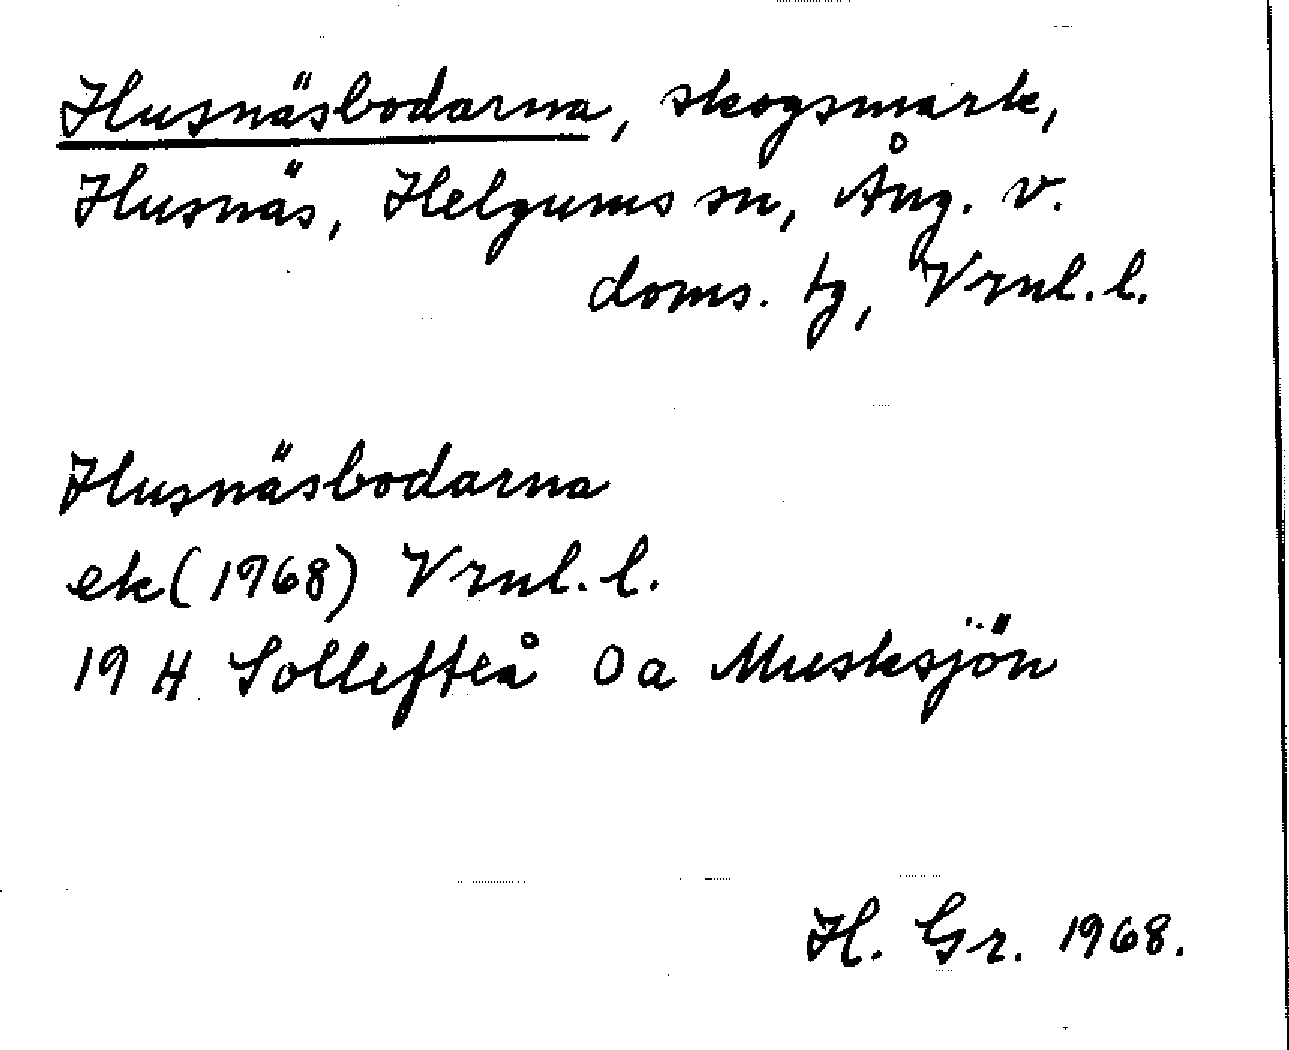 Husnäsbodarna, skogsmark,
Husnäs, Helgums sn, Ång. v.
doms. tg, Vrnl. l.
Husnäsbodarna
ek (1968) Vrnl. l.
19 H Sollefteå 0 a Musksjön
H. Gr. 1968.